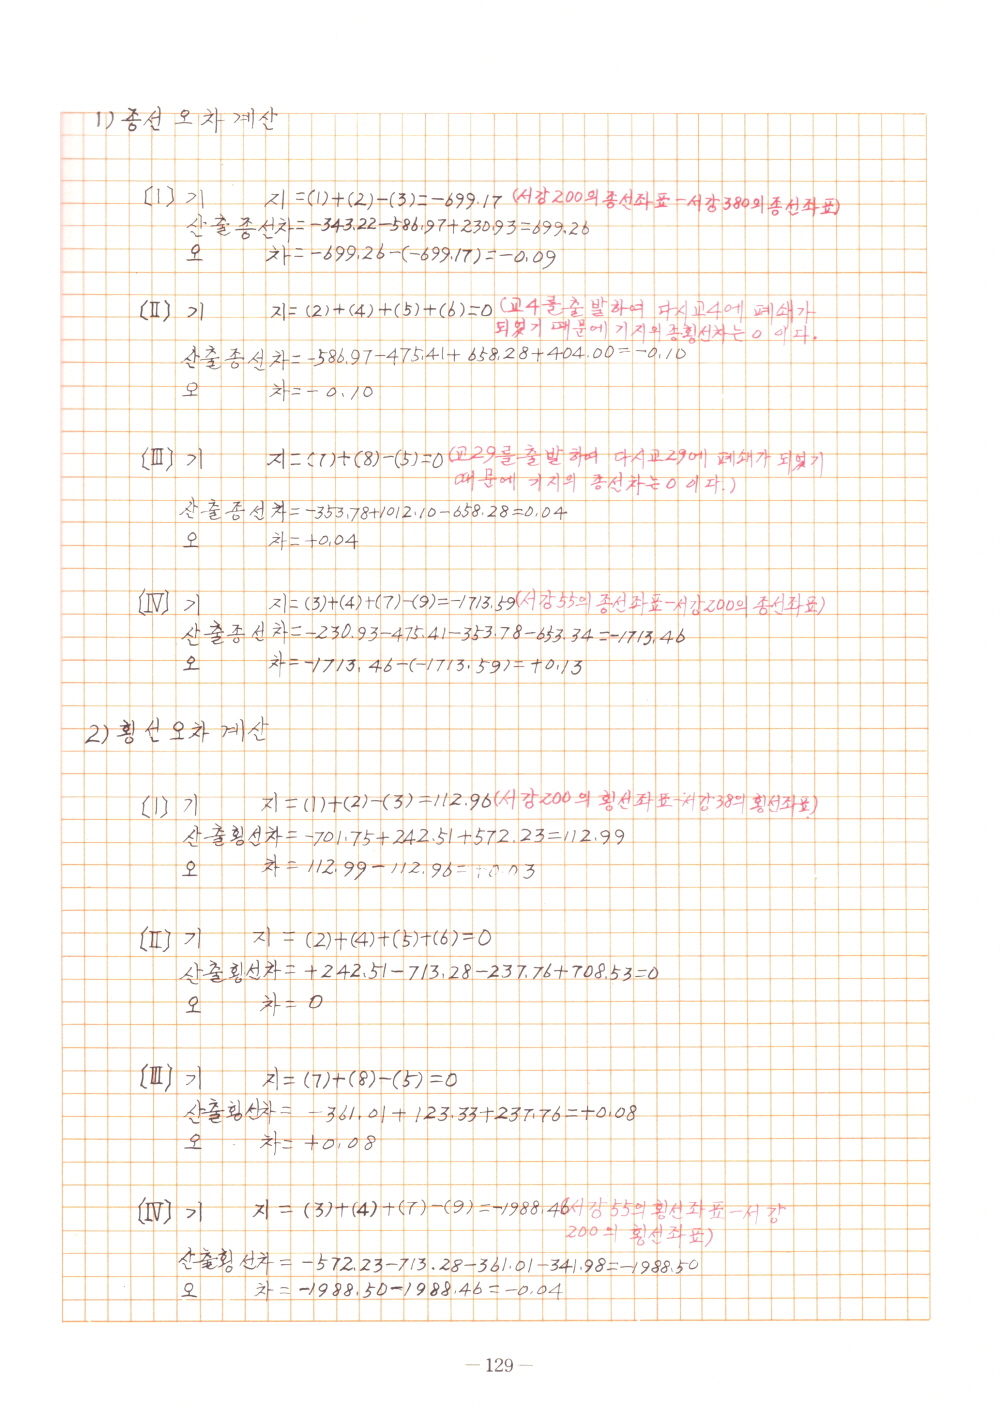 1) 종선 오차 계산
[I] 기 지=(1)+(2)-(3)=-699.17 (서강200의 종선좌표-서강380의 종선좌표)
산출종선차=-343.22-586.97+230.93=699.26
오 차=-699.26-(-699.17)=-0.09
[II] 기 지=(2)+(4)+(5)+(6)=0 (교4를 출발하여 다시교4에 폐쇄가
되었기 때문에 기지의 종횡선차는 0 이다.
산출종선차=-586.97-475.41+658.28+404.00=-0.10
오 차=-0.10
[III] 기 지=(7)+(8)-(5)=0 (교29를 출발하여 다시교29에 폐쇄가 되었기
때문에 기지의 종선차는 0 이다.)
산출종선차=-353.78+1012.10-658.28=0.04
오 차=+0.04
[IV] 기 지=(3)+(4)+(7)-(9)=-1713.59(서강55의 종선좌표-서강200의 종선좌표)
산출종선차=-230.93-475.41-353.78-653.34=-1713.46
오 차=-1713.46-(-1713.59)=+0.13
2) 횡선오차 계산
[I] 기 지=(1)+(2)-(3)=112.96(서강200의 횡선좌표-서강38의 횡선좌표)
산출횡선차=-701.75+242.51+572.23=112.99
오 차=112.99-112.96=+0.03
[II] 기 지=(2)+(4)+(5)+(6)=0
산출횡선차=+242.51-713.28-237.76+708.53=0
오 차=0
[III] 기 지=(7)+(8)-(5)=0
산출횡선차=-361.01+123.33+237.76=+0.08
오 차=+0.08
[IV] 기 지=(3)+(4)+(7)-(9)=-1988.46(서강55의 횡선좌표-서강
200의 횡선좌표)
산출횡선차=-572.23-713.28-361.01-341.98=-1988.50
오 차=-1988.50-1988.46=-0.04
— 129 —